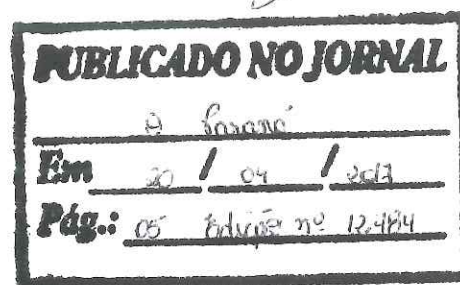 PUBLICADO NO JORNAL
O Paraná
Em 20 / 04 / 2017
Pág.: 05 Edição nº 12.484